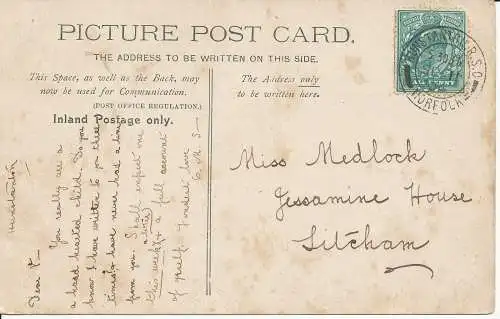 PICTURE POST CARD.
THE ADDRESS TO BE WRITTEN ON THIS SIDE.
This Space, as well as the Back, may
now be used for Communication.
(POST OFFICE REGULATION.)
Inland Postage only.
The Address only
to be written here.
HUNSTANTON R.S.O.
11
NORFOLK
Miss Medlock
Jessamine House
Litcham
Hunstanton
Dear
You really are a
a hard hearted child. Do you
know I have written to you three
times & have never had a line
from you. Shall expect one
this week & a full account
of yourself. Fondest love